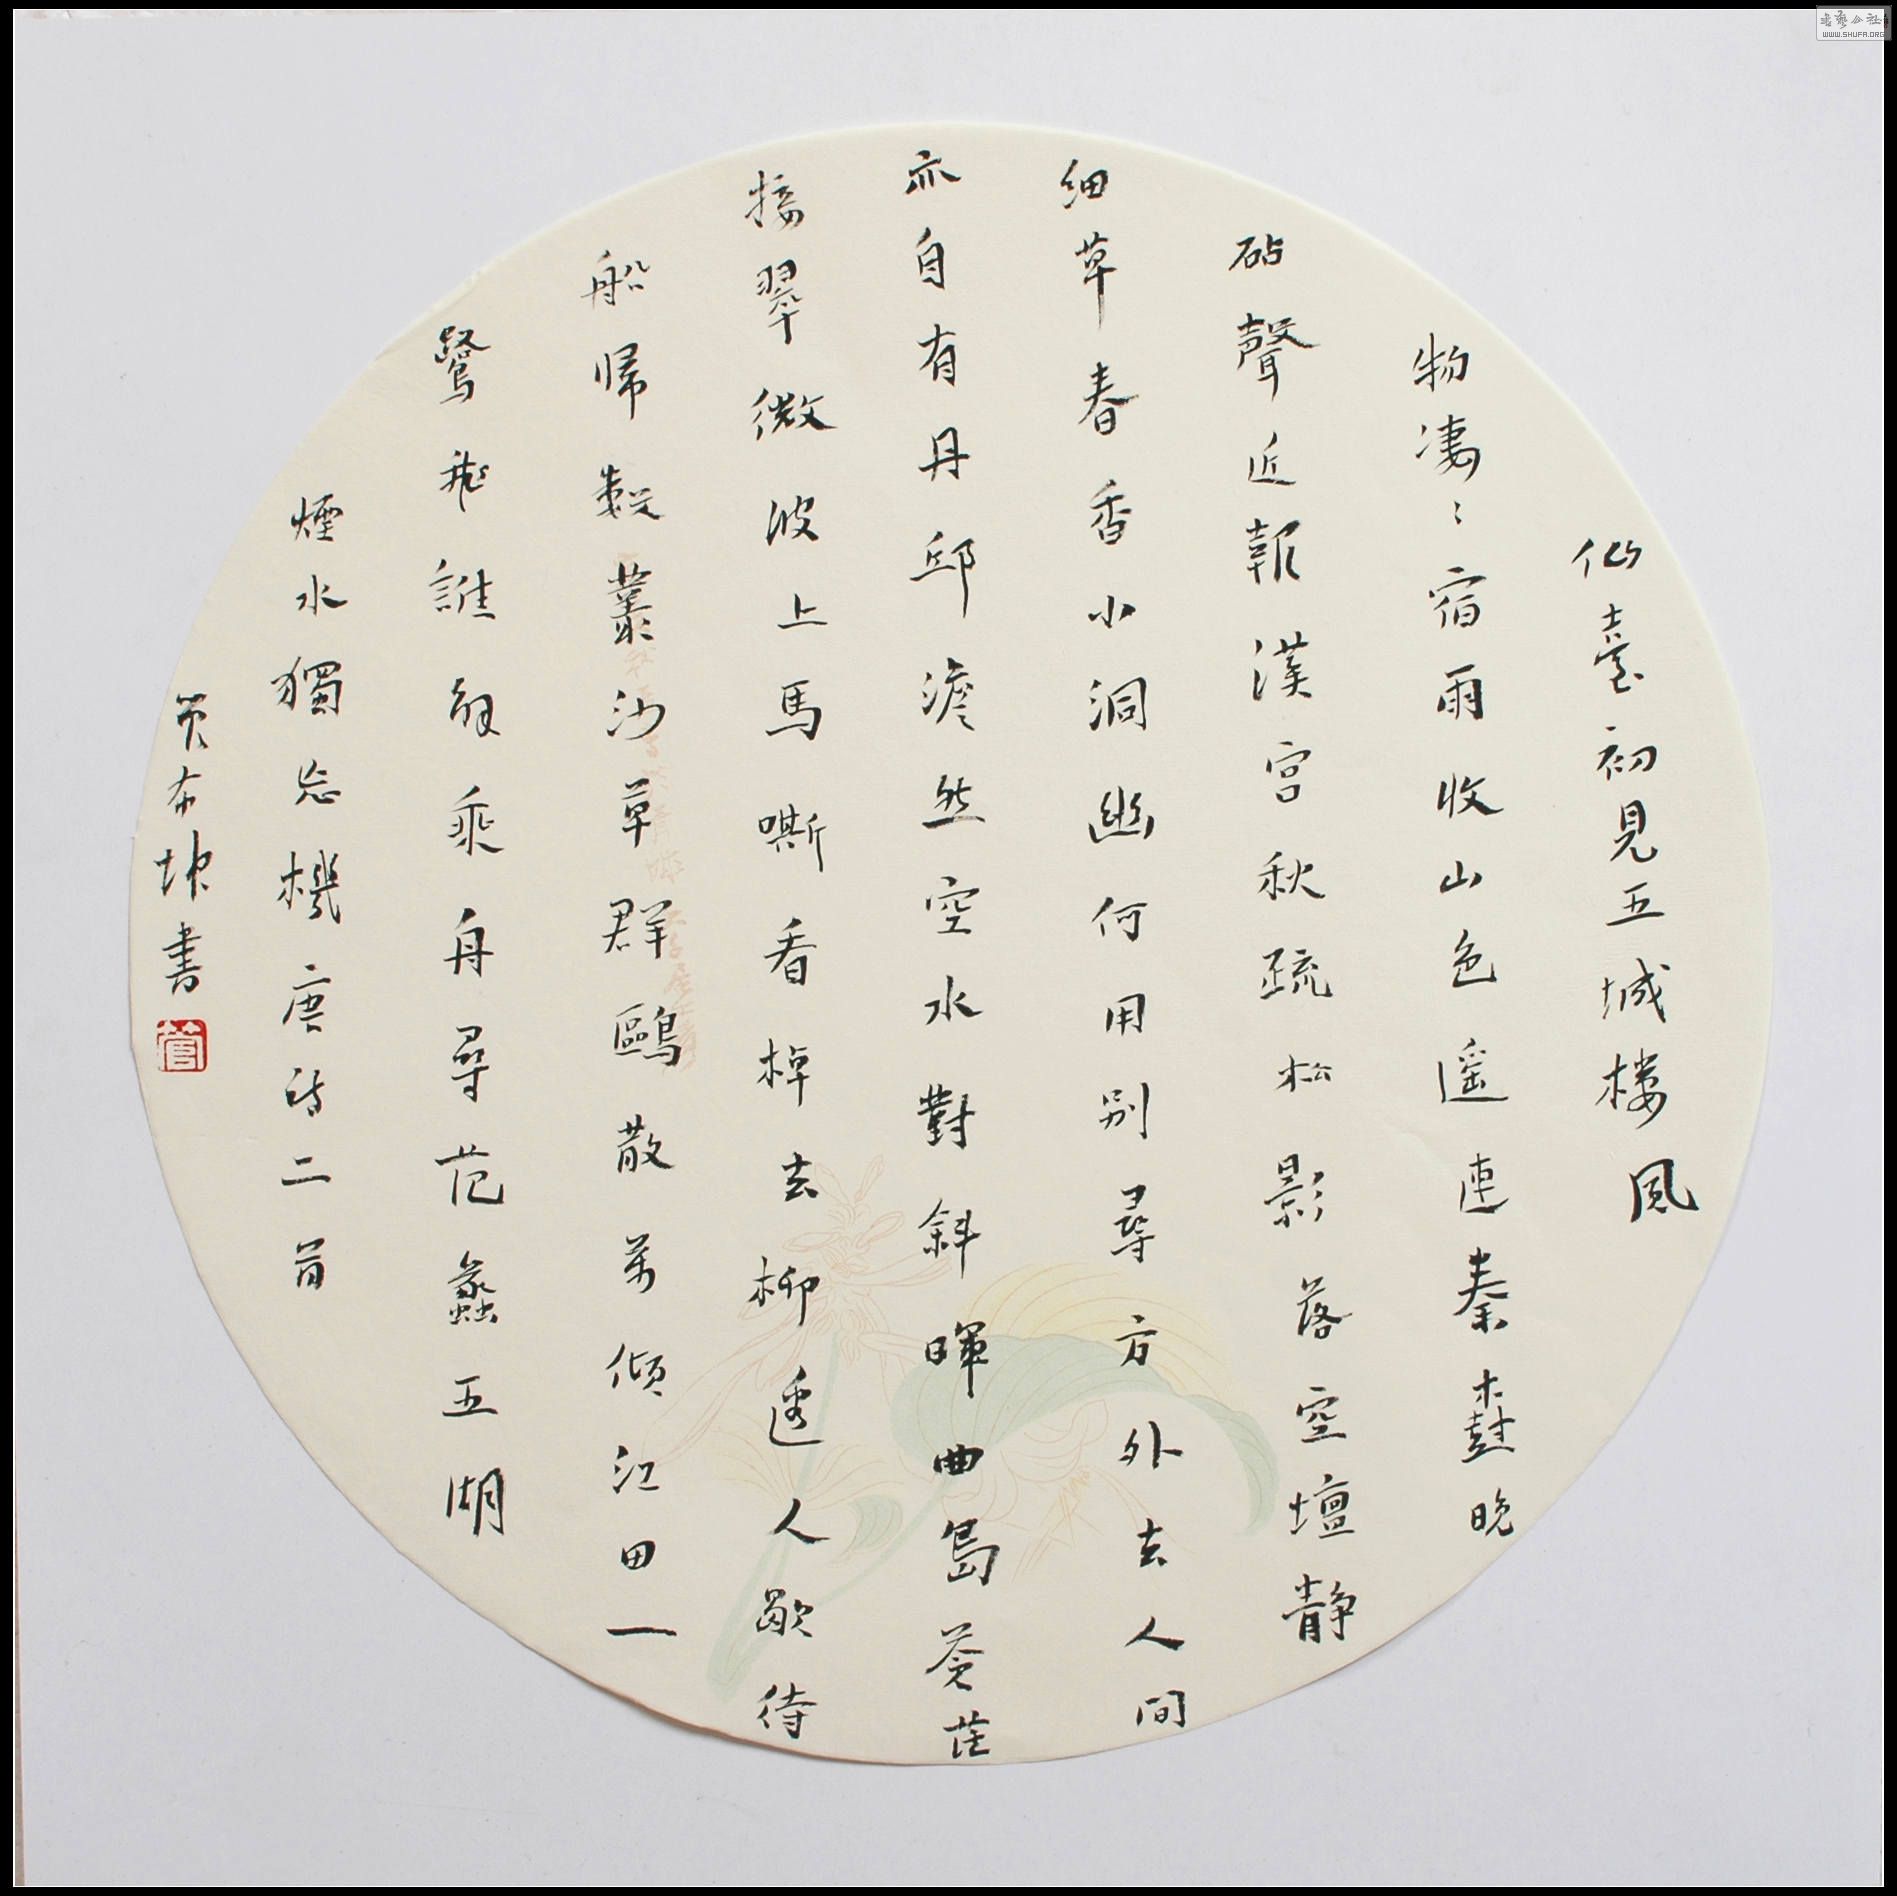 仙臺初見五城樓風
物凄〻宿雨收山色遥連秦𣗳晚
砧聲近報漢宮秋疏松影落空壇静
細草春香小洞幽何用别尋方外去人間
亦自有丹邱澹然空水對斜暉曲島蒼茫
接翠微波上馬嘶看棹去柳邊人歇待
船歸數叢沙草群鷗散萬傾江田一
鷺飛誰解乘舟尋范蠡五湖
煙水獨忘機唐诗二首
布坤書
管
書藝公社
WWW.SHUFA.ORG